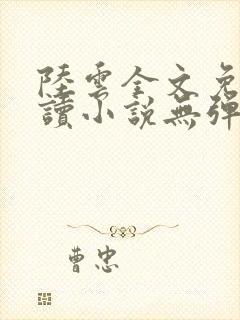 陸雲全文免
讀小說無彈
曹忠